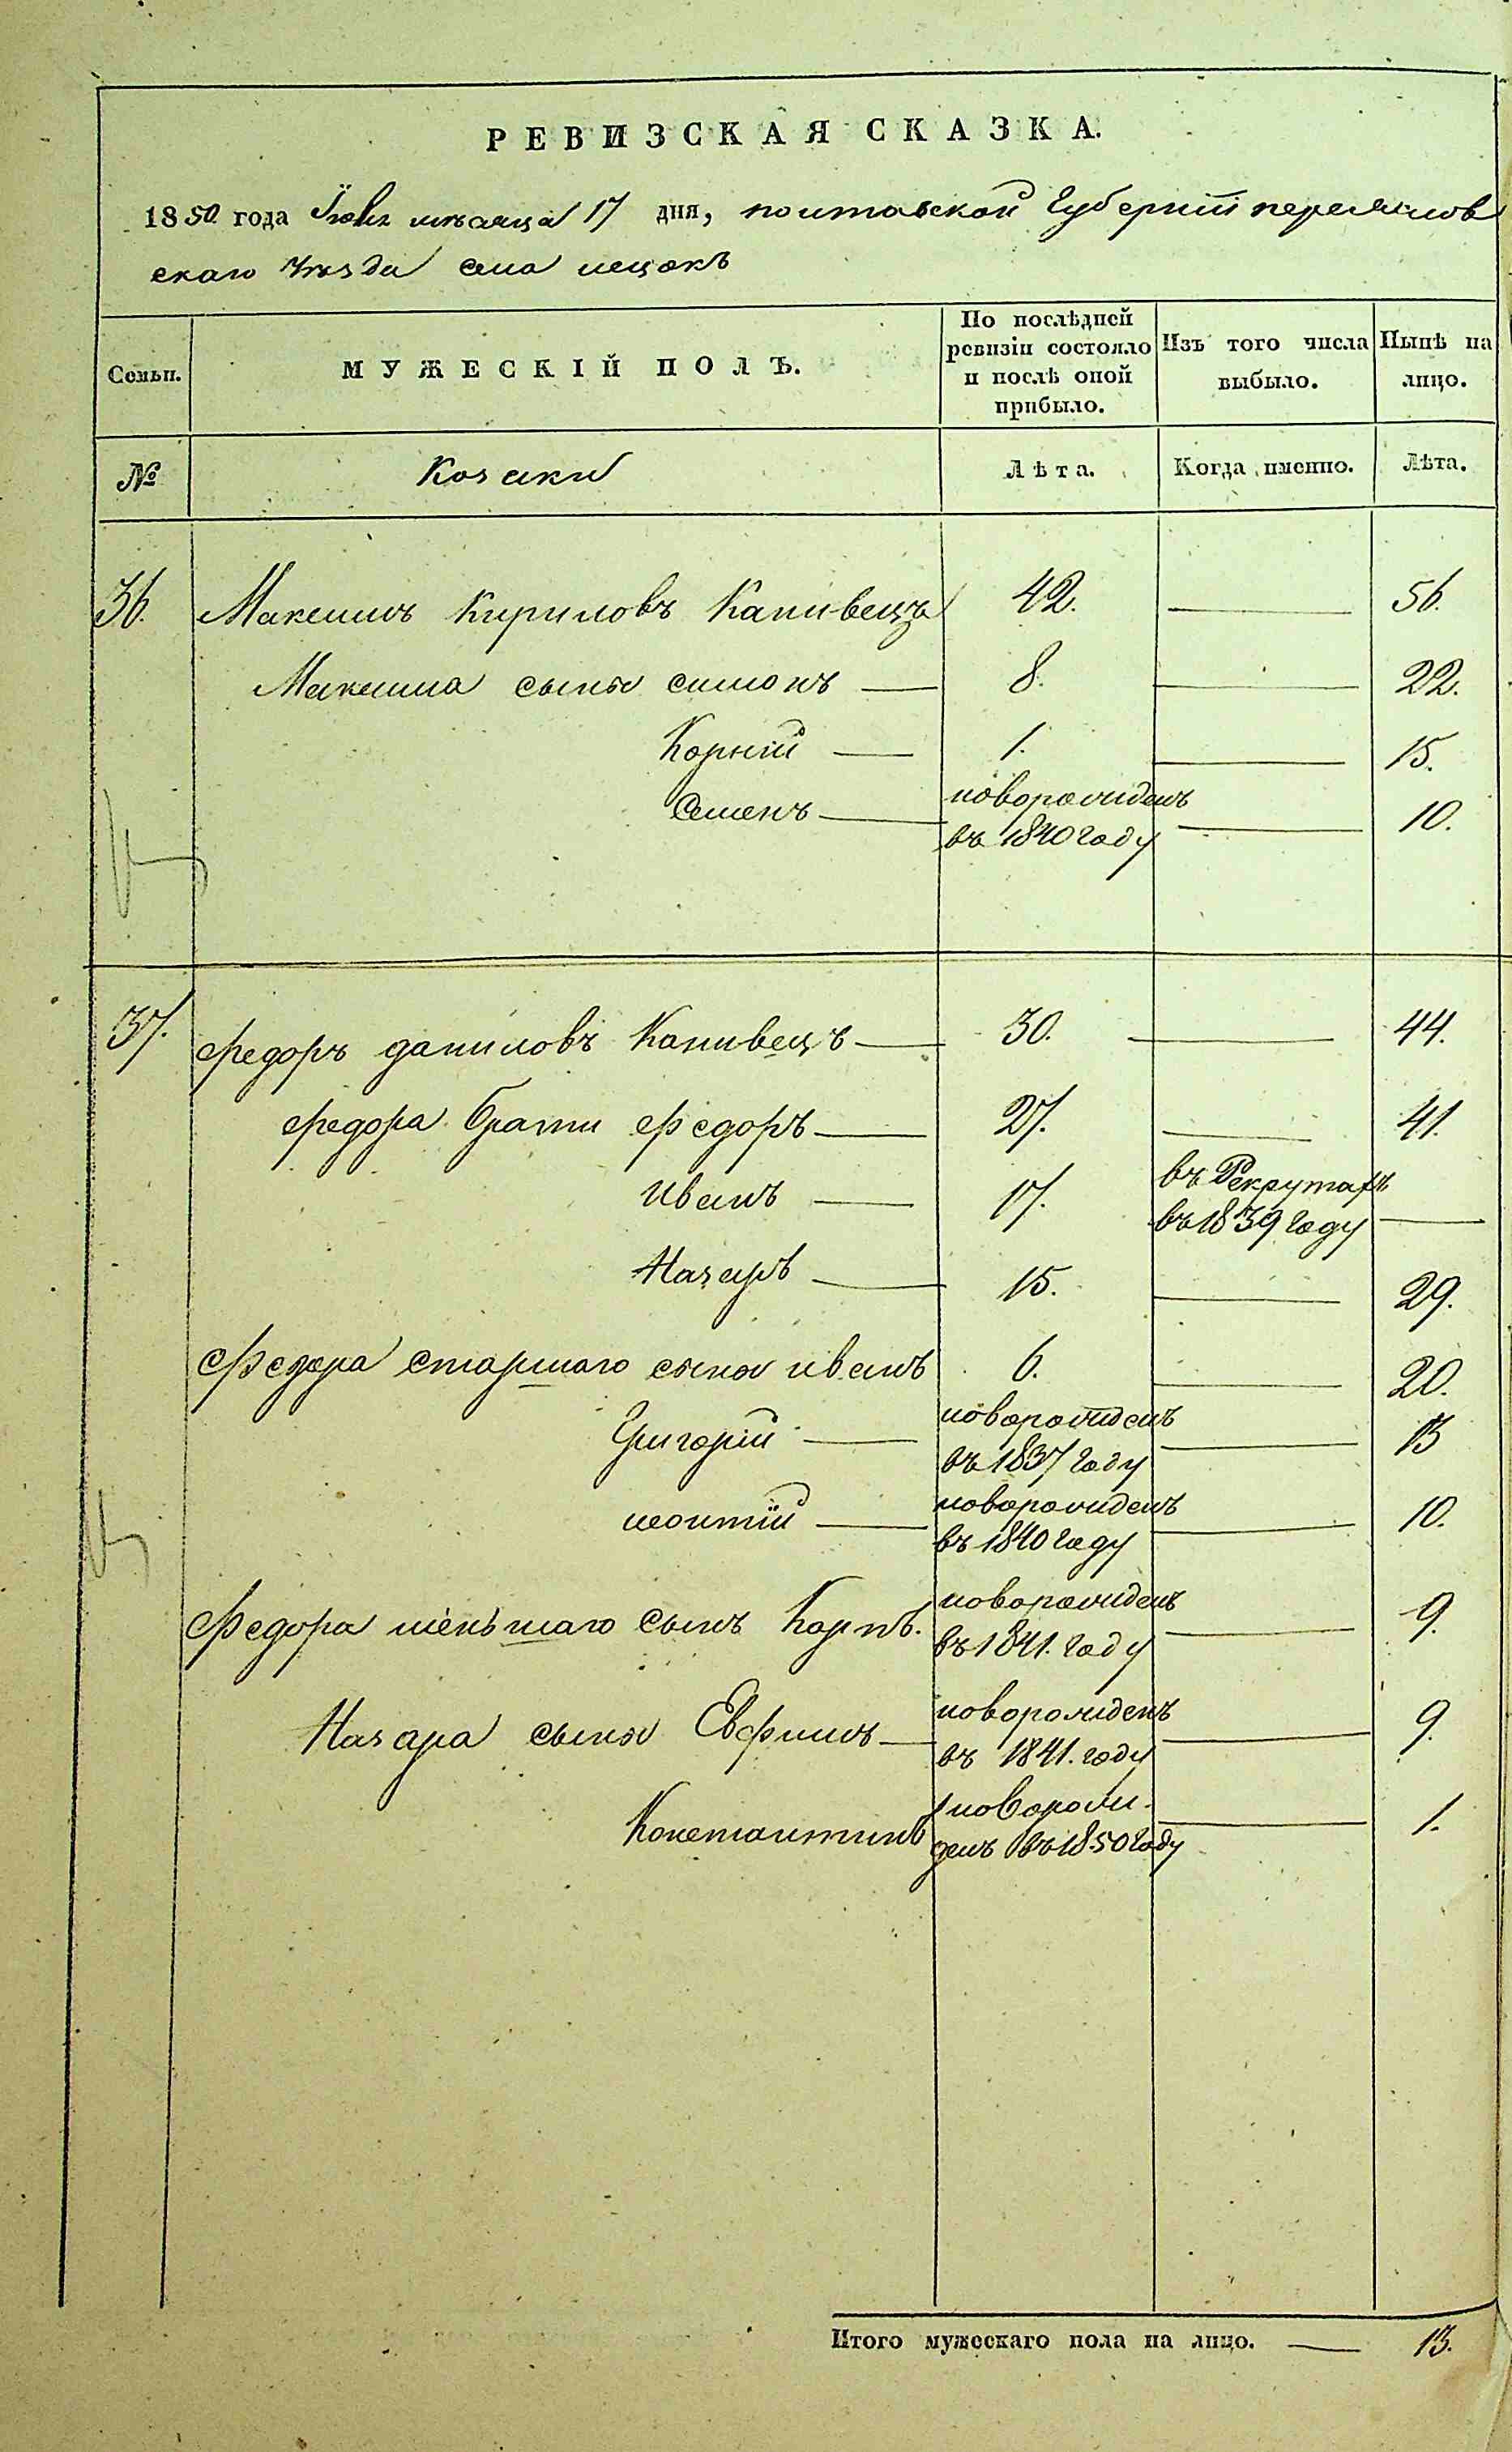 РЕВИЗСКАЯ СКАЗКА.
1850 года Июля мѣсяца 17 дня, полтавской Губерніи переяслов
скаго Уѣзда села лецокъ
Семьи. МУЖЕСКІЙ ПОЛЪ. По послѣдней ревизіи состояло и послѣ оной прибыло. Изъ того числа выбыло. Нынѣ на лицо.
№ Козаки Лѣта. Когда именно. Лѣта.
36. Максимъ Кириловъ Канивецъ 42. — 56.
Максима сыны симонъ — 8. — 22.
Корній — 1. — 15.
Семенъ — новорожденъ въ 1840 году — 10.
37. Федоръ даниловъ Канивецъ — 30. — 44.
Федора браты Федоръ — 27. — 41.
иванъ — 17. въ Рекрутахъ въ 1839 году —
Назаръ — 15. — 29.
Федора старшаго сыны иванъ 6. — 20.
Григорій — новорожденъ въ 1837 году — 13
леонтій — новорожденъ въ 1840 году — 10.
Федора меньшаго сынъ Карпъ. новорожденъ въ 1841. году — 9.
Назара сыны Евфимъ — новорожденъ въ 1841. году — 9.
Константинъ новорожденъ въ 1850 году — 1.
Итого мужескаго пола на лицо. — 13.